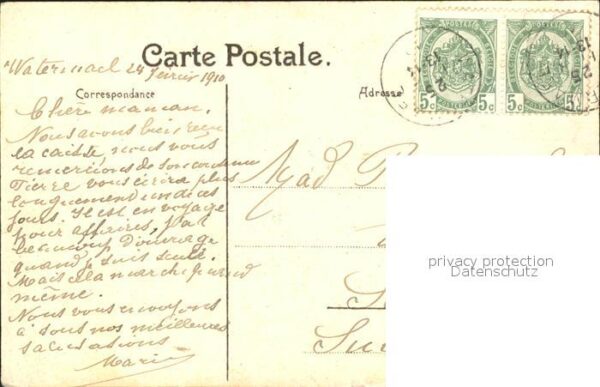 Carte Postale.
Watermael 24 février 1910
Correspondance
Adresse
5c 5c 5c
Chère maman.
Nous avons bien reçu
la caisse, nous vous
remercions de son contenu
Pierre vous écrira plus
longuement un de ces
jours. Il est en voyage
pour affaires, j'ai
beaucoup d'ouvrage
quand je suis seule.
Mais cela marche quand
même.
Nous vous envoyons
à tous nos meilleures
salutations
Marie
Mad
privacy protection
Datenschutz